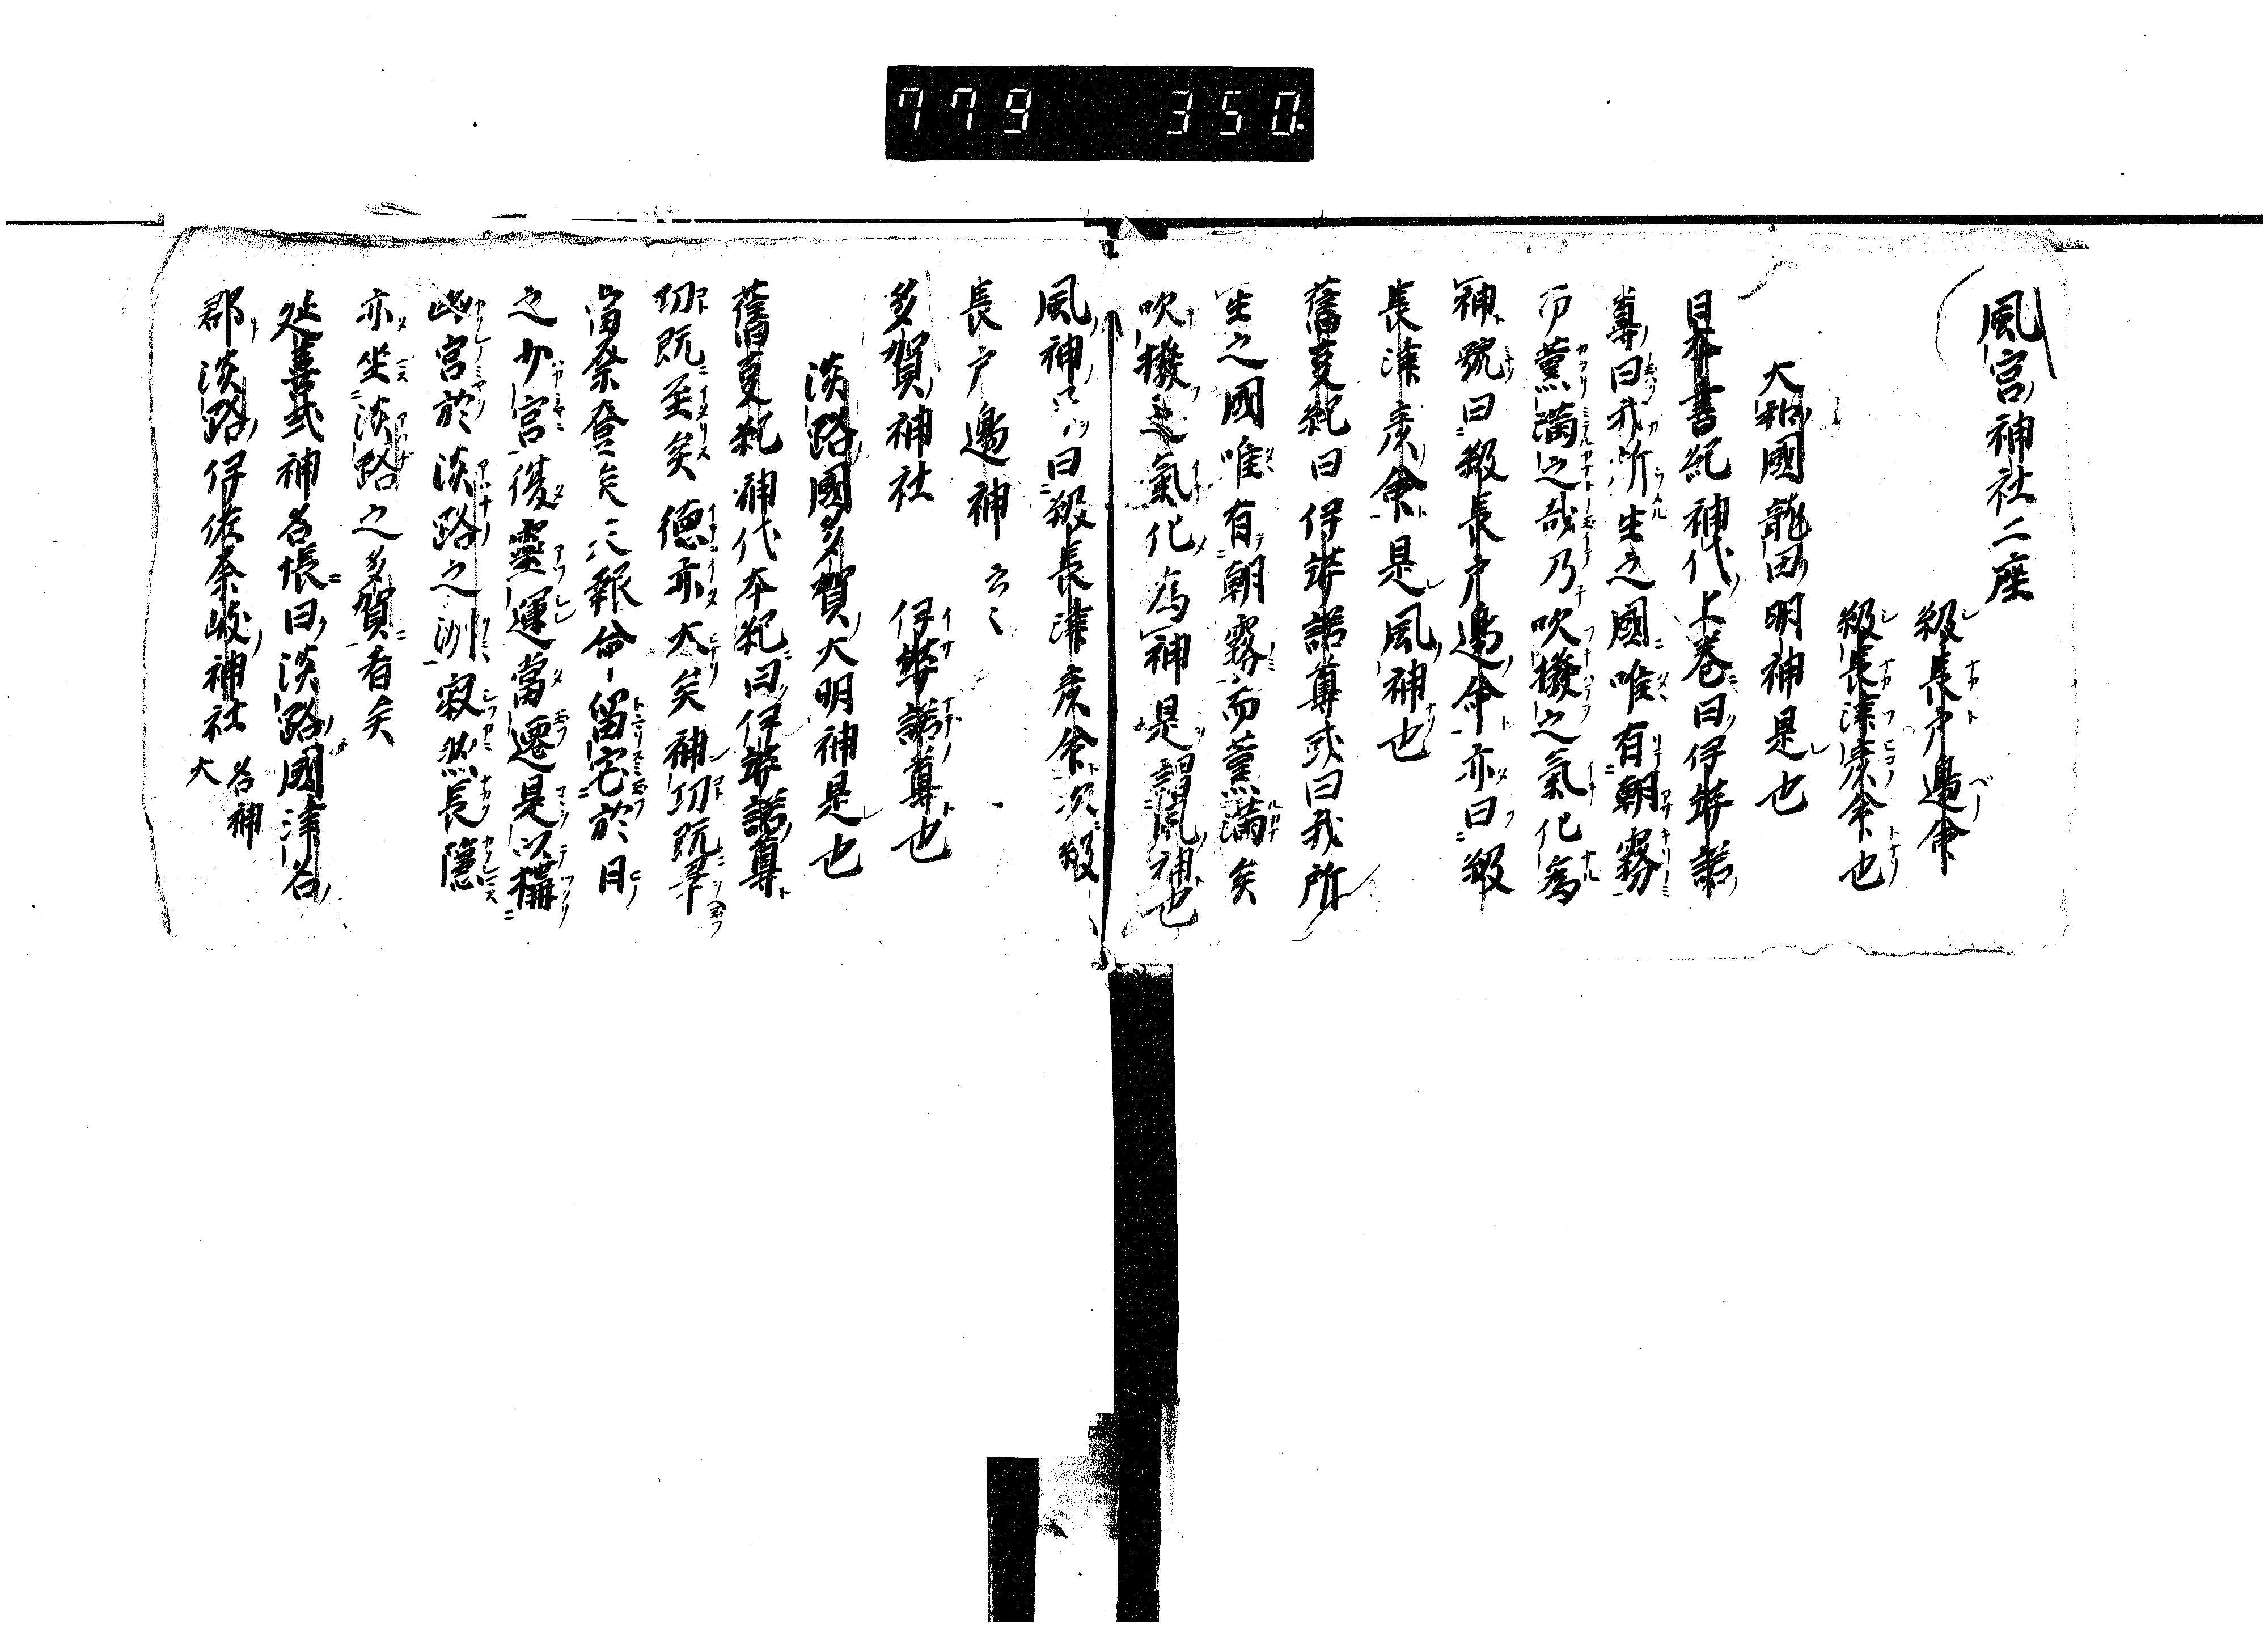 779 350.
風宮神社二座
級長戸邉命
級長津彦命也
大和國龍田明神是也
日本書紀神代上巻曰伊弉諾
尊曰我所生之國唯有朝霧
而薫満之哉乃吹撥之氣化為
神號曰級長戸邉命亦曰級
長津彦命是風神也
舊事紀曰伊弉諾尊或曰我所
生之國唯有朝霧而薫満矣
吹撥之氣化為神是謂風神也
風神曰級長津彦命次級
長戸邉神云々
多賀神社 伊弉諾尊也
淡路國多賀大明神是也
舊事紀神代本紀曰伊弉諾尊
功既至矣徳亦大矣神功既畢
當登矣天報命留宅於日
之少宮復靈運當遷是以構
幽宮於淡路之洲寂然長隠
亦坐淡路之多賀者矣
延喜式神名帳曰淡路國津名
郡淡路伊佐奈岐神社 名神
大